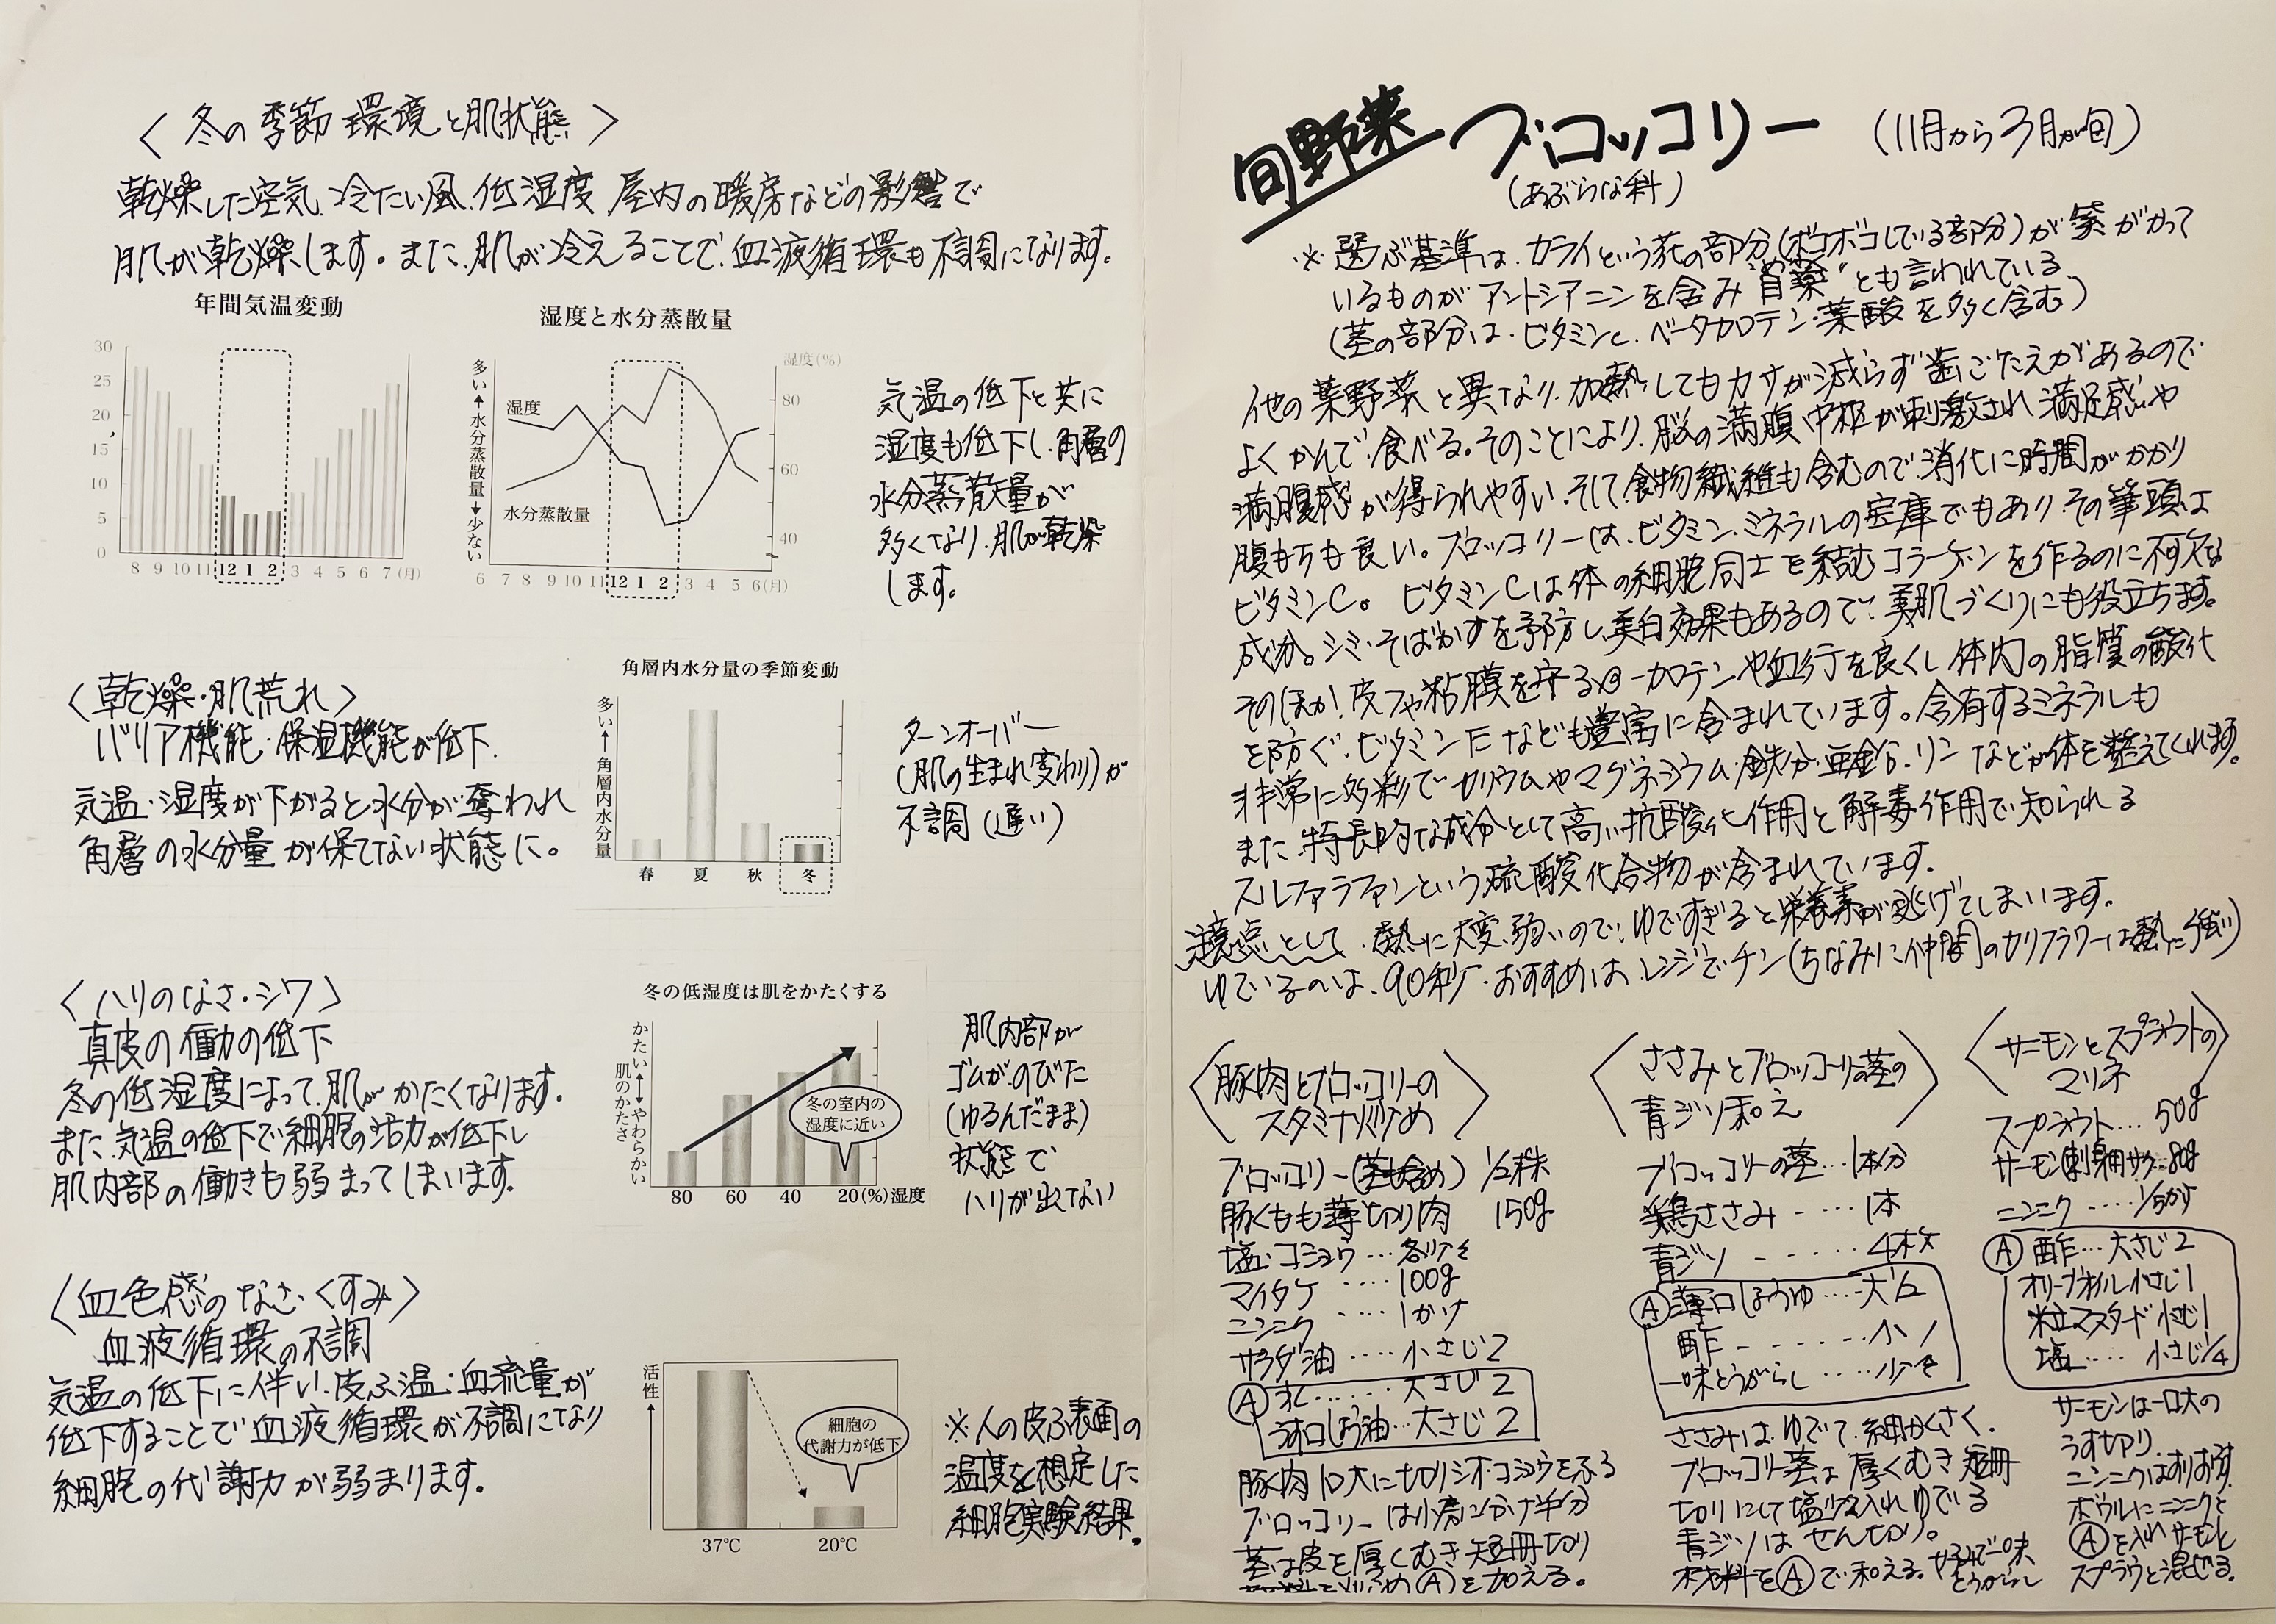 〈 冬の季節 環境と肌状態 〉
乾燥した空気、冷たい風、低湿度、屋内の暖房などの影響で
肌が乾燥します。また、肌が冷えることで、血液循環も不調になります。
年間気温変動
30
25
20
15
10
5
0
8 9 10 11 12 1 2 3 4 5 6 7(月)
湿度と水分蒸散量
多い↑水分蒸散量↓少ない
湿度
水分蒸散量
湿度(%)
80
60
40
6 7 8 9 10 11 12 1 2 3 4 5 6(月)
気温の低下と共に
湿度も低下し、角層の
水分蒸散量が
多くなり、肌が乾燥
します。
〈乾燥・肌荒れ〉
バリア機能・保湿機能が低下、
気温・湿度が下がると水分が奪われ
角層の水分量が保てない状態に。
角層内水分量の季節変動
多い↑角層内水分量
春 夏 秋 冬
ターンオーバー
(肌の生まれ変わり)が
不調(遅い)
〈ハリのなさ・シワ〉
真皮の働力の低下
冬の低湿度によって、肌がかたくなります。
また、気温の低下で細胞の活力が低下し
肌内部の働きも弱まってしまいます。
冬の低湿度は肌をかたくする
かたい↑↓やわらかい
肌のかたさ
冬の室内の
湿度に近い
80 60 40 20(%)湿度
肌内部が
ゴムがのびた
(ゆるんだまま)
状態で
ハリが出てない
〈血色感のなさ・くすみ〉
血液循環の不調
気温の低下に伴い、皮ふ温・血流量が
低下することで血液循環が不調になり
細胞の代謝力が弱まります。
活性↑
細胞の
代謝力が低下
37℃ 20℃
※人の皮ふ表面の
温度を想定した
細胞実験結果。
旬野菜 ブロッコリー (11月から3月が旬)
(あぶらな科)
※ 選ぶ基準は、カライという花の部分(ボコボコしている部分)が紫がかって
いるものがアントシアニンを含み "首薬" とも言われている
(茎の部分は、ビタミンC、ベータカロテン・葉酸を多く含む)
他の葉野菜と異なり、加熱してもカサが減らず歯ごたえがあるので
よくかんで食べる。そのことにより、脳の満腹中枢が刺激され満足感や
満腹感が得られやすい。そして食物繊維も含むので消化に時間がかかり
腹もちも良い。ブロッコリーは、ビタミン、ミネラルの宝庫でもあり、その筆頭は
ビタミンC。ビタミンCは体の細胞同士を結むコラーゲンを作るのに不可欠な
成分。シミ・そばかすを予防し、美白効果もあるので、美肌づくりにも役立ちます。
そのほか、皮フや粘膜を守るβ-カロテンや血行を良くし体内の脂質の酸化
を防ぐ、ビタミンEなども豊富に含まれています。含有するミネラルも
非常に多彩でカリウムやマグネシウム・鉄分・亜鉛、リンなどが体を整えてくれます。
また、特長的な成分として高い抗酸化作用と解毒作用で知られる
スルファラファンという硫酸化合物が含まれています。
注意点として、熱に大変弱いので、ゆですぎると栄養素が逃げてしまいます。
ゆでいるのは、90秒。おすすめは、レンジでチン(ちなみに仲間のカリフラワーは熱に強い)
〈豚肉とブロッコリーの
スタミナ炒め〉
ブロッコリー(茎も含め) 1/2株
豚もも薄切り肉 150g
塩・コショウ…各少々
マイタケ ….. 100g
ニンニク ….. 1かけ
サラダ油 ….. 小さじ2
Ⓐ 水…… 大さじ2
うす口しょう油…大さじ2
豚肉一口大に切りシオ・コショウをふる
ブロッコリーは小房に分け半分
茎は皮を厚くむき短冊切り
材料を炒めⒶを加える。
〈ささみとブロッコリーの茎の
青ジソ和え〉
ブロッコリーの茎…1本分
鶏ささみ ---- 1本
青ジソ ------ 4枚
Ⓐ 薄口しょうゆ …大1/2
酢 ------ 小1
一味とうがらし …少々
ささみは、ゆでて、細かくさく、
ブロッコリー茎は厚くむき短冊
切りにして塩少々入れゆでる
青ジソはせんぎり。
材料をⒶで和える。 一味
とうがらし
〈サーモンとスプラウトの
マリネ〉
スプラウト… 50g
サーモン刺身用サク…80g
ニンニク ….. 1/5かけ
Ⓐ 酢…大さじ2
オリーブオイル小さじ1
粒マスタード小さじ1
塩…. 小さじ1/4
サーモンは一口大の
うす切り、
ニンニクはすりおろす
ボウルにニンニクと
Ⓐを入れサーモンと
スプラウトと混ぜる。